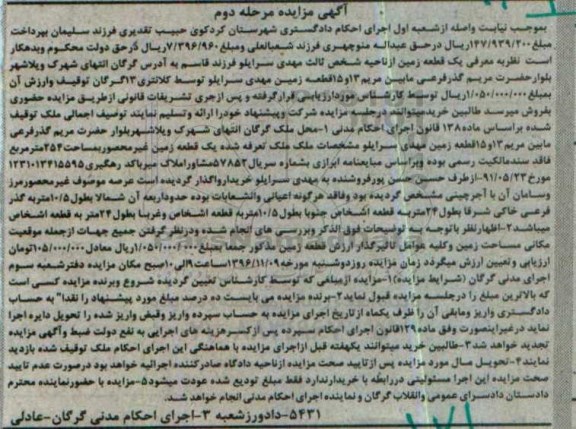 آگهی مزایده مرحله دوم
بموجب نیابت واصله ازشعبه اول اجرای احکام دادگستری شهرستان کردکوی حبیب تقدیری فرزند سلیمان بپرداخت
مبلغ۱۴۷/۹۳۹/۲۰۰ریال درحق عبداله منوچهری فرزند شعبانعلی ومبلغ۷/۳۹۶/۹۶۰ریال درحق دولت محکوم وبدهکار
است نظربه معرفی یک قطعه زمین ازناحیه شخص ثالث مهدی سرایلو فرزند قاسم به آدرس گرگان انتهای شهرک ویلاشهر
بلوارحضرت مریم گذرفرعی مابین مریم۱۳و۱۵قطعه زمین مهدی سرایلو توسط کلانتری۱۳گرگان توقیف وارزش آن
بمبلغ۱/۰۵۰/۰۰۰/۰۰۰ریال توسط کارشناس موردارزیابی قرارگرفته و پس ازجری تشریفات قانونی ازطریق مزایده حضوری
بفروش میرسد طالبین خریدمیتوانند درجلسه مزایده شرکت وپیشنهاد خودرا ارائه وتسلیم نمایند توصیف اجمالی ملک توقیف
شده براساس ماده۱۳۸ قانون اجرای احکام مدنی ۱-محل ملک گرگان انتهای شهرک ویلاشهربلوار حضرت مریم گذرفرعی
مابین مریم۱۳و۱۵قطعه زمین مهدی سرایلو مشخصات ملک ملک تعرفه شده یک قطعه زمین غیرمحصوربمساحت۲۵۴مترمربع
فاقد سندمالکیت رسمی بوده وبراساس مبایعنامه ابرازی بشماره سریال۵۷۸۵۲مشاوراملاک میرباکد رهگیری۱۲۳۱۰۱۳۴۱۵۵۹۵
مورخ۹۱/۰۵/۲۳ازطرف حسین حسن پورفروشنده به مهدی سرایلو خریدارواگذار گردیده است عرصه موصوف غیرمحصورمرز
وسامان آن با آجرچینی مشخص گردیده بود وفاقد هرگونه اعیانی وانشعابات بوده حدوداربعه آن شمالا بطول۱۰/۵متربه گذر
فرعی خاکی شرقا بطول۲۴متربه قطعه اشخاص جنوبا بطول۱۰/۵متربه قطعه اشخاص وغربا بطول۲۴متر به قطعه اشخاص
میباشد۲-اظهارنظر باتوجه به توضیحات فوق الذکر وبررسی های انجام شده ودرنظر گرفتن جمیع جهات ازجمله موقعیت
مکانی مساحت زمین وکلیه عوامل تاثیرگذار ارزش قطعه زمین مذکور جمعا بمبلغ۱/۰۵۰/۰۰۰/۰۰۰ریال معادل ۱۰۵/۰۰۰/۰۰۰تومان
ارزیابی وتعیین ارزش میگردد زمان مزایده روزدوشنبه مورخه۱۳۹۶/۱۱/۰۹ساعت۹الی۱۰صبح مکان مزایده دفترشعبه سوم
اجرای مدنی گرگان (شرایط مزایده)۱-مزایده ازمبلغی که توسط کارشناس تعیین گردیده شروع وبرنده مزایده کسی است
که بالاترین مبلغ را درجلسه مزایده قبول نماید۲-برنده مزایده می بایست ده درصد مبلغ مورد پیشنهاد را نقدا" به حساب
دادگستری واریز ومابقی آن را ظرف یکماه ازتاریخ اجرای مزایده به حساب سپرده واریز وقبض واریز شده را تحویل دایره اجرا
نماید درغیراینصورت وفق ماده۱۲۹قانون اجرای احکام سپرده پس ازکسرهزینه های اجرایی به نفع دولت ضبط وآگهی مزایده
تجدید خواهد شد۳-طالبین خرید میتوانند یکهفته قبل ازاجرای مزایده با هماهنگی این اجرای احکام ملک توقیف شده بازدید
نمایند۴-تحویل مال مورد مزایده پس ازتایید صحت مزایده ازناحیه دادگاه صادرکننده اجرائیه خواهد بود درصورت عدم تایید
صحت مزایده این اجرا مسئولیتی دررابطه با خریدارندارد فقط مبلغ تودیع شده عودت میشود۵-مزایده با حضورنماینده محترم
دادستان دادسرای عمومی وانقلاب گرگان و نماینده اجرای احکام مدنی انجام خواهد شد.
۵۴۳۱-دادورزشعبه ۳-اجرای احکام مدنی گرگان-عادلی